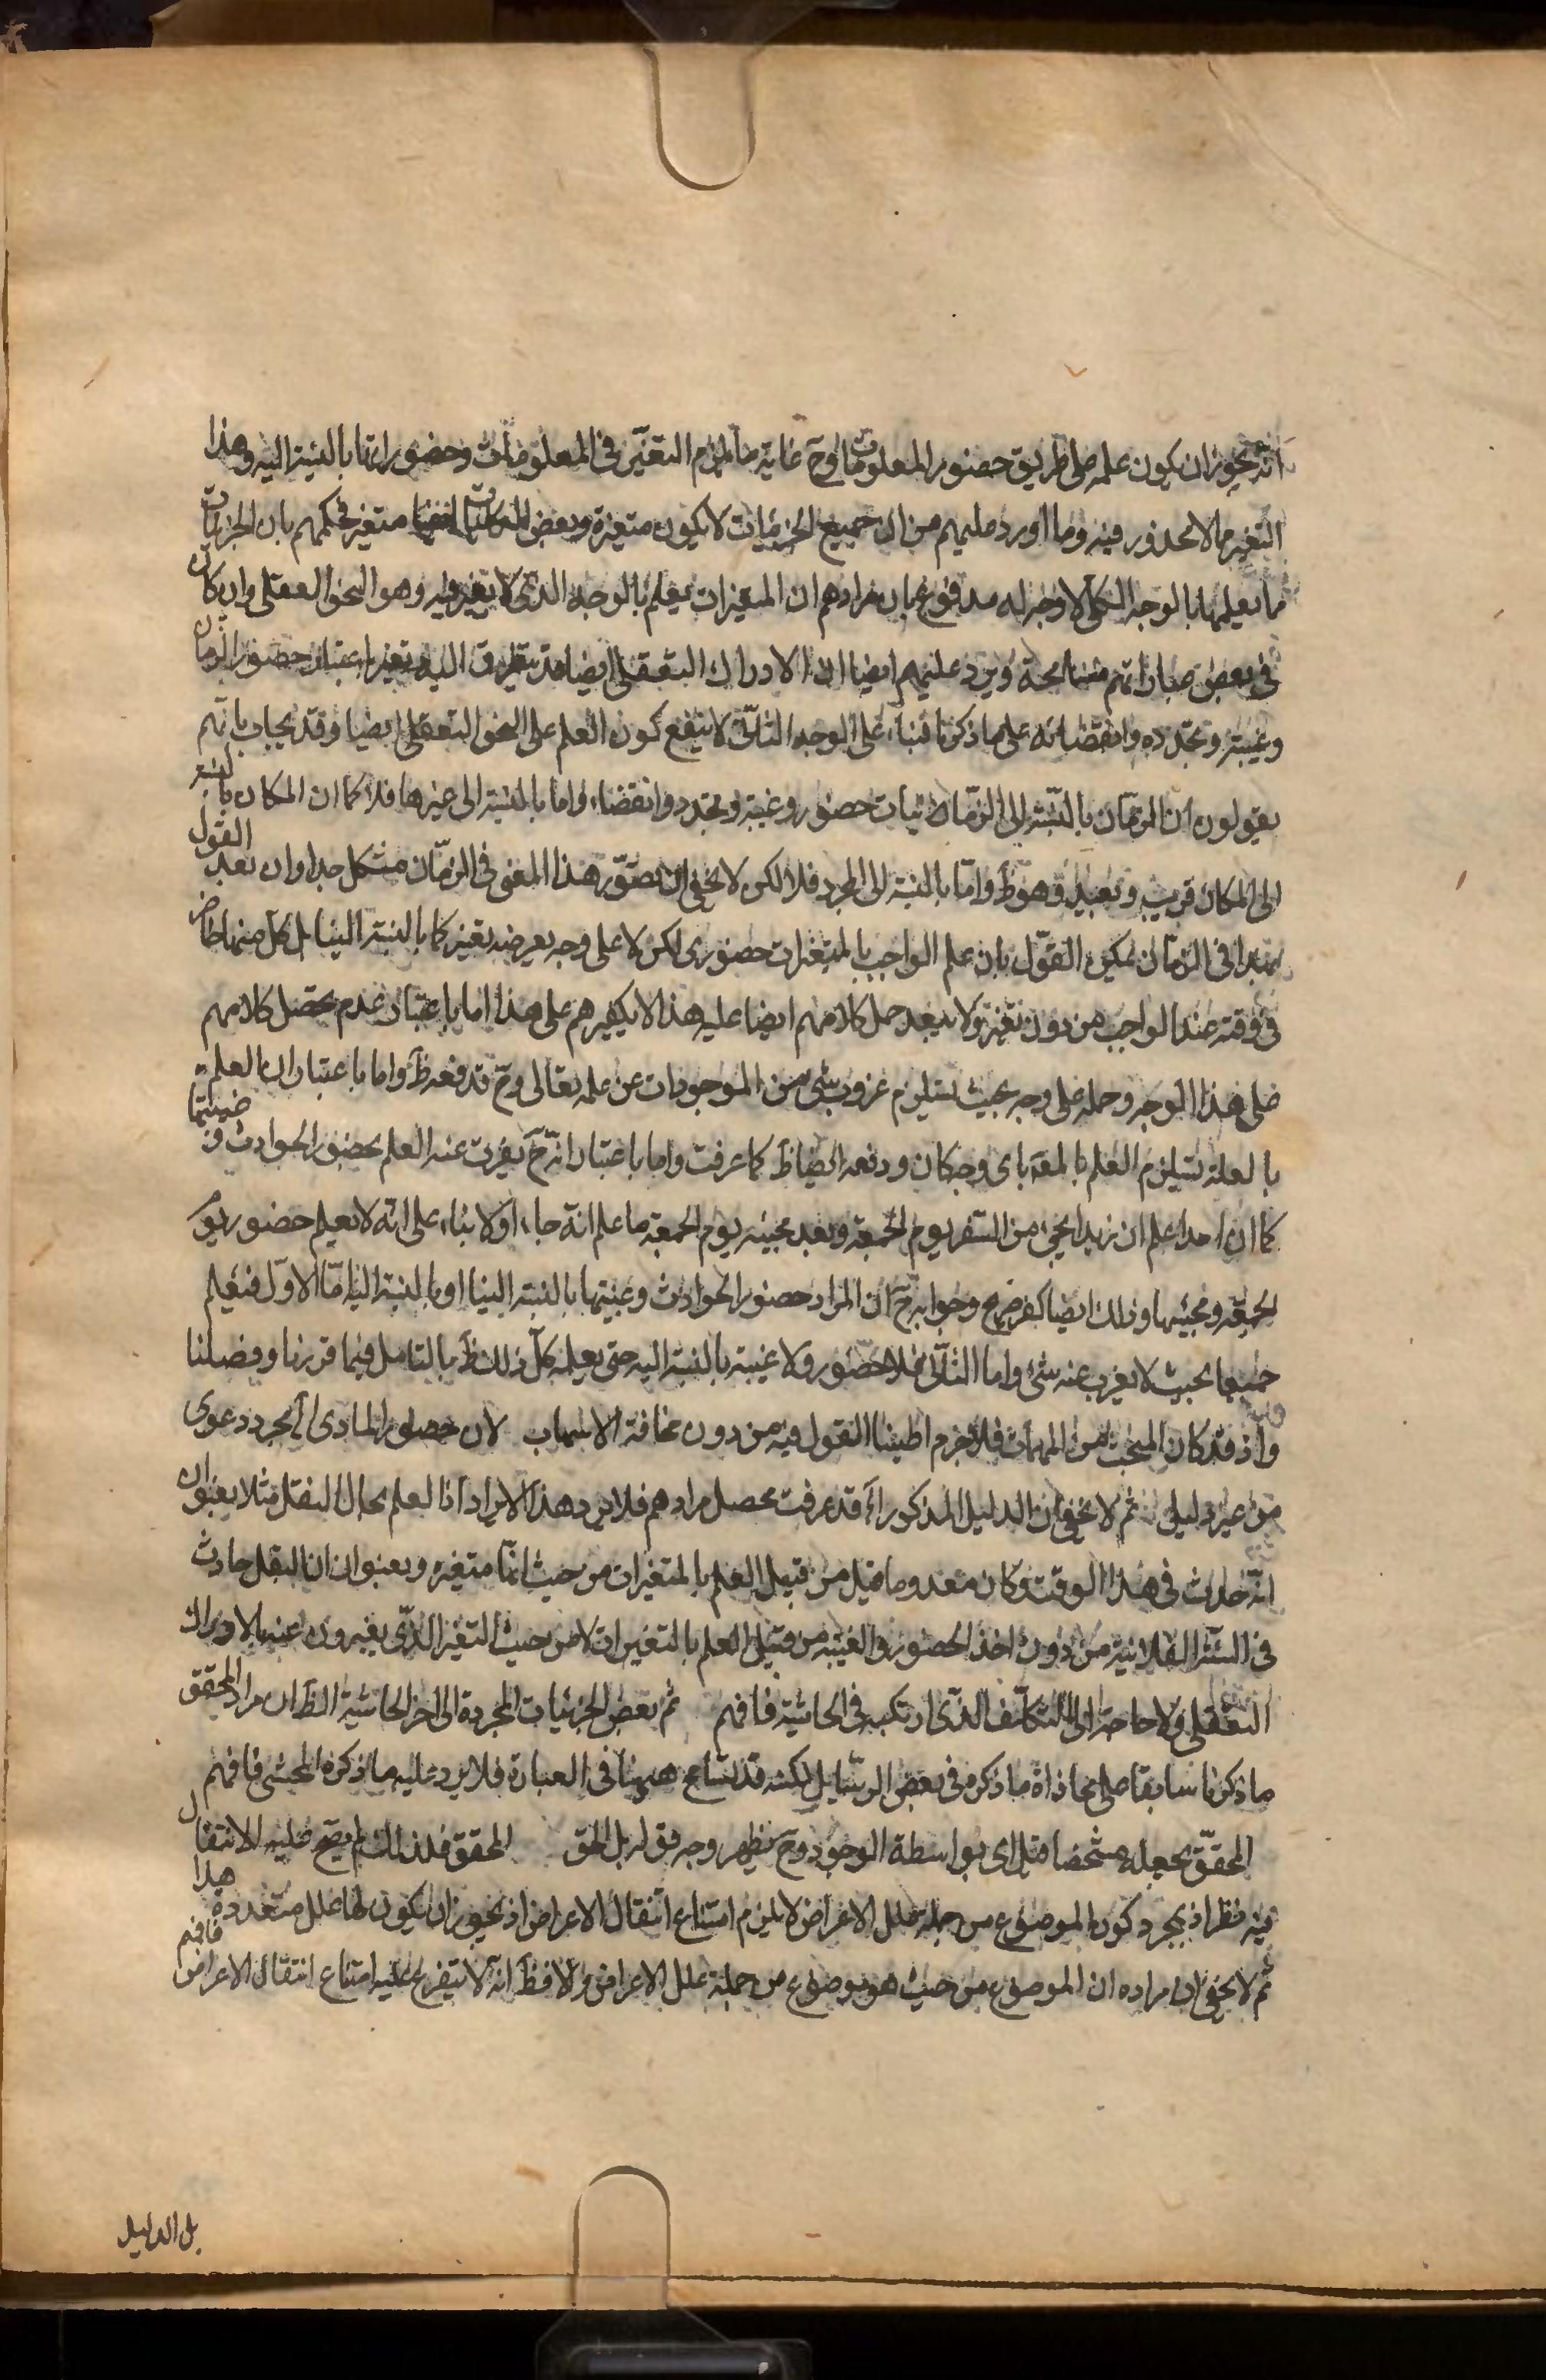 انه يجوز ان يكون علمه على طريق حضور المعلومات وح غاية ما يلزم التغير في المعلومات وحضوراتها بالنسبة اليه وهذا
التغير مما لا محذور فيه وما اورد عليهم من ان جميع الجزئيات لا يكون متغيرة وبعض ايضا متغير فحكمهم بان الجزئيات
مما يعلمها بالوجه الكلي لا وجه له مدفوع بان مرادهم ان المتغيرات يعلم بالوجه الذي لا يتغير وليه وهو النحو العقلي وان كان
في بعض عباراتهم مسامحة ويرد عليهم ايضا ان الادراك التعقلي ايضا قد يتطرق اليه تغير باعتبار حضور الزمان
وغيبته وتجدده وانقضائه على ما ذكرنا بناء على الوجه الثاني لا ينفع كون العلم على النحو التعقلي ايضا وقد يجاب بانهم
يقولون ان الزمان بالنسبة الى الزمانيات حضور وغيبة وتجدد وانقضاء واما بالنسبة الى غيرها فلا كما ان المكان بالنسبة
الى المكان قريب وبعيد وهو ظ واما بالنسبة الى المجرد فلا لكن لا يخفى ان تصور هذا المعنى في الزمان مشكل جدا وان بعد القول
بهذا في الزمان يمكن القول بان علم الواجب بالمتغيرات حضوري لكن لا على وجه يعرضه تغير كما بالنسبة الينا بل كل منها حاضر
في وقته عند الواجب من دون تغير ولا يبعد حمل كلامهم ايضا عليه هذا لا يكفرهم على هذا اما باعتبار عدم تحصل كلامهم
على هذا الوجه وحمله على وجه بحيث يستلزم عزوب شيء من الموجودات عن علمه تعالى وح قد دفعه ظ واما باعتبار ان العلم
بالعلة يستلزم العلم بالمعلول باي وجه كان ودفعه ايضا ظ كما عرفت واما باعتبار انه ح يعزب عنه العلم بحضور الحوادث وغيبتها
كما ان احدا علم ان زيدا يجيء من السفر يوم الجمعة وبعد مجيئه يوم الجمعة ما علم انه جاء او لا بناء على انه لا يعلم حضور يوم
الجمعة ومجيئها وذلك ايضا كفر صريح وجوابه ح ان المراد حضور الحوادث وغيبتها بالنسبة الينا او بالنسبة اليه اما الاول فيعلم
جميعا بحيث لا يعزب عنه شيء واما الثاني فلا حضور ولا غيبة بالنسبة اليه حتى يعلمه كل ذلك ظ بالتامل فيما قررنا وفصلنا
واذ قد كان المبحث من المهمات فلا جرم اطنبنا القول فيه من دون مخافة الاسهاب لان حصول المادي المجرد دعوى
من غير دليل ثم لا يخفى ان الدليل المذكور قد عرفت محصل مرادهم فلا يرد هذا الايراد اذ العلم بحال النقل مثلا بعنوان
انه حادث في هذا الوقت وكان معدوما قبل من قبيل العلم بالمتغيرات من حيث انها متغيرة وبعنوان ان النقل حادث
في السنة الفلانية من دون اخذ الحضور والغيبة من قبيل العلم بالمتغيرات لا من حيث التغير الذي يعبرون عنه بالادراك
التعقلي ولا حاجة الى التكلف الذي ارتكبه في الحاشية فافهم ثم بعض الجزئيات المجردة الى اخر الحاشية الظ ان مراد المحقق
ما ذكرنا سابقا على محاذاة ما ذكره في بعض الرسايل لكنه قد تسامح ههنا في العبارة فلا يرد عليه ما ذكره المحشي فافهم
المحقق بجعله مشخصا قيل اي بواسطة الوجود وح يظهر وجه قوله بل الحق المحقق فلذلك لم يصح عليه الانتقال
فيه نظر اذ بمجرد كون الموضوع من جملة علل الاعراض لا يلزم امتناع انتقال الاعراض اذ يجوز ان يكون لها علل متعددة هذا
ثم لا يخفى ان مراده ان الموضوع من حيث هو موضوع من جملة علل الاعراض والا فظ انه لا يتفرع عليه امتناع انتقال الاعراض فافهم
بل الدليل